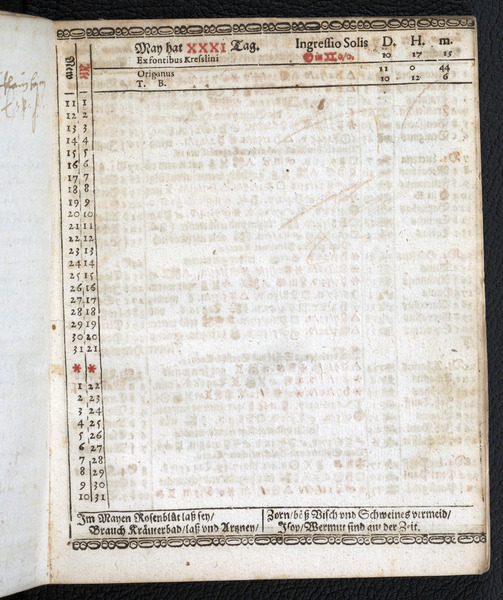 May hat XXXI Tag. Ingressio Solis D. H. m.
Ex fontibus Kreslini ☉ in ♊ 0/0. 10 17 15
Origanus 11 0 44
T. B. 10 12 6
New Alt
11 1
12 2
13 3
14 4
15 5
16 6
17 7
18 8
19 9
20 10
21 11
22 12
23 13
24 14
25 15
26 16
27 17
28 18
29 19
30 20
31 21
* *
1 22
2 23
3 24
4 25
5 26
6 27
7 28
8 29
9 30
10 31
Im Mayen Rosenblüt laß sey/
Brauch Kräuterbad/laß vnd Artzney/
Zorn/böß Visch vnd Schweines vermeid/
Isop/Wermut sind an der Zeit.